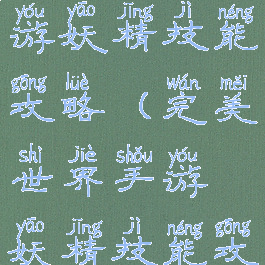 yóu yāo jīng jì néng
游妖精技能
gōng lüè wán měi
攻略（完美
shì jiè shǒu yóu
世界手游
yāo jīng jì néng gōng
妖精技能攻